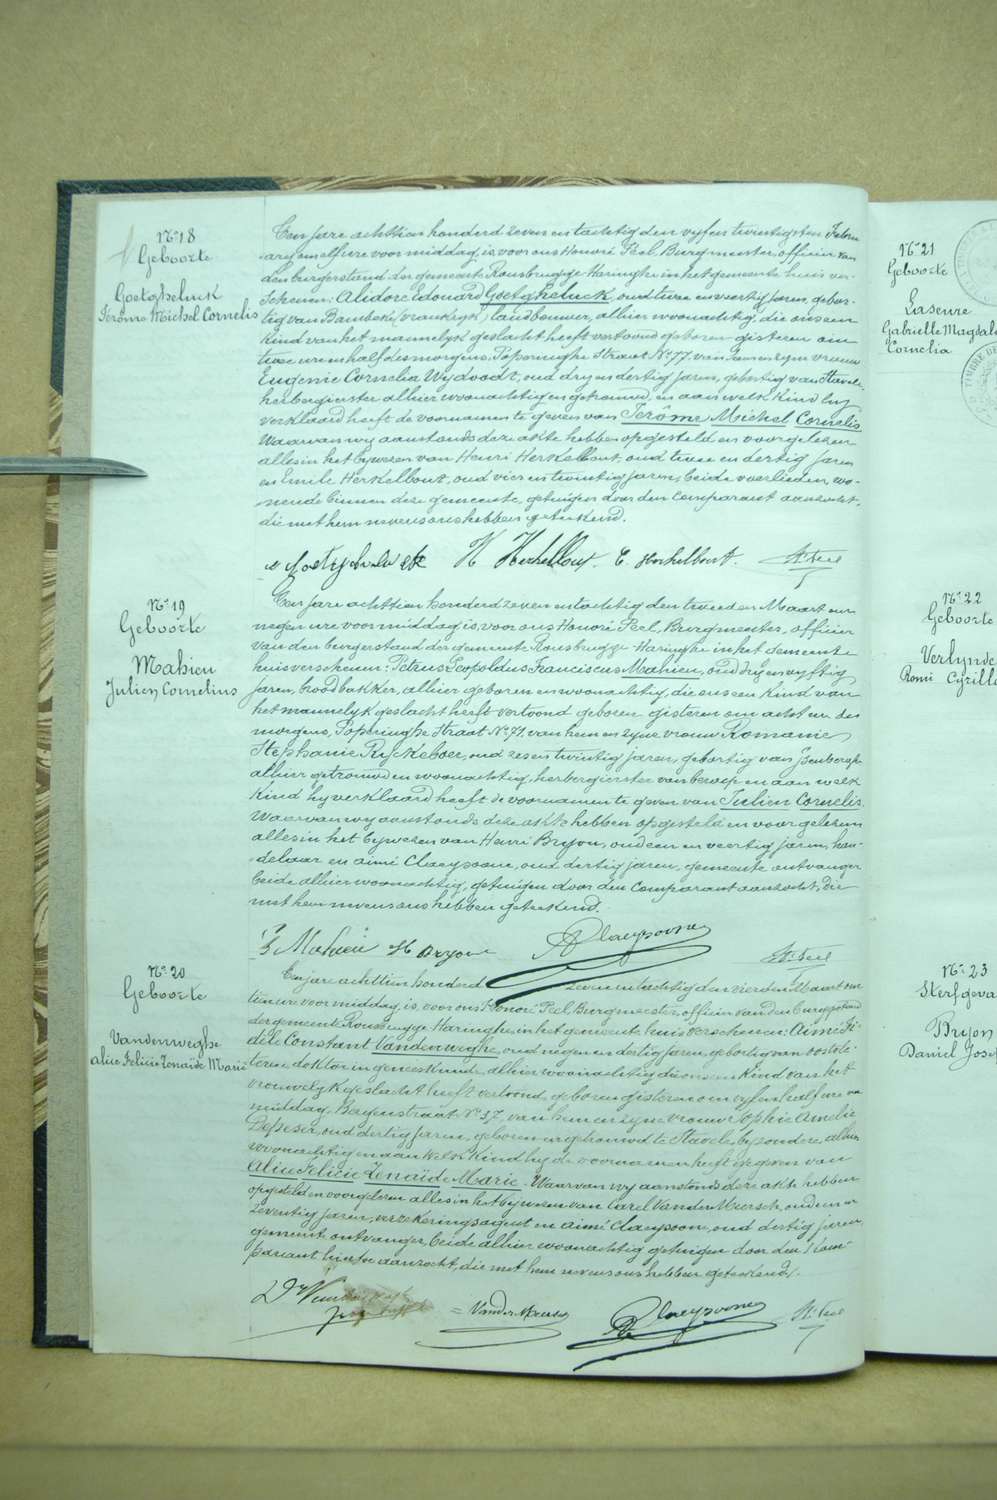 N° 18
Geboorte
Goetgheluck
Jérôme Michel Cornelis
Een jare achttien honderd zeven en tachtig den vyf en twintigsten Febru
ary om elf ure voor middag, is voor ons Honoré Peel Burgmeester officier van
den burgerstand der gemeente Rousbrugge-Haringhe in het gemeente huis ver-
schenen: Alidore Edouard Goetgheluck, oud twee en veertig jaren, gebor-
tig van Bambeke (vrankryk) landbouwer, alhier woonachtig, die ons een
kind van het mannelyk geslacht heeft vertoond geboren gisteren om
twee ure en half des morgens, Poperinghe Straat N° 77, van hem en zyne vrouw
Eugenie Cornelia Wydoodt, oud dry en dertig jaren, gebortig van Stavele,
herbergierster alhier woonachtig en getrouwd, en aan welk kind hy
verklaard heeft de voornamen te geven van Jérôme Michel Cornelis.
Waarvan wy aanstonds deze akte hebben opgesteld en voorgelezen
alles in het bywezen van Henri Herkelbout, oud twee en dertig jaren
en Emile Herkelbout, oud vier en twintig jaren, beide voerlieden, wo-
nende binnen deze gemeente, getuigen door den comparant aanzocht,
die met hem nevens ons hebben geteekend.
Goetgheluck H Herkelbout. E. Herkelbout. H. Peel
N° 19
Geboorte
Mahieu
Julien Cornelius
Een jare achttien honderd zeven en tachtig den tweeden Maart om
negen ure voor middag is voor ons Honoré Peel, Burgmeester, officier
van den burgerstand der gemeente Rousbrugge-Haringhe in het Gemeente
huis verschenen: Petrus Leopoldus Franciscus Mahieu, oud dry en vyftig
jaren, broodbakker, alhier geboren en woonachtig, die ons een kind van
het mannelyk geslacht heeft vertoond geboren gisteren om acht ure des
morgens, Poperinghe Straat N° 71, van hem en zyne vrouw Romanie
Stephanie Ryckeboer, oud zes en twintig jaren, gebortig van
alhier getrouwd en woonachtig, herbergierster van beroep en aan welk
kind hy verklaard heeft de voornamen te geven van Julien Cornelis.
Waarvan wy aanstonds deze akte hebben opgesteld en voorgelezen
alles in het bywezen van Henri Bryon, oud een en veertig jaren, han-
delaar en aimé Claeyssone, oud dertig jaren, gemeente ontvanger
beide alhier woonachtig, getuigen door den Comparant aanzocht, die
met hem nevens ons hebben geteekend.
Mahieu H Bryon A Claeyssone H. Peel
N° 20
Geboorte
Vanderweghe
Alice Felicie Zenaïde Marie
Een jare achttien honderd zeven en tachtig den vierden Maart om
tien ure voor middag is voor ons Honoré Peel Burgmeester, officier van den burgerstand
der gemeente Rousbrugge-Haringhe, in het gemeente huis verschenen: Aimé Fi-
dèle Constant Vanderweghe, oud negen en dertig jaren, gebortig van oostvle-
teren, doktor in geneeskunde, alhier woonachtig die ons een kind van het
vrouwelyk geslacht heeft vertoond, geboren gisteren om vyf en half ure na
middag, Bergenstraat N° 37, van hem en zyne vrouw Sophie Amelie
oud dertig jaren, geboren en getrouwd te Stavele, byzondere, alhier
woonachtig en aan welk kind hy de voornamen heeft gegeven van
Alice Felicie Zenaïde Marie. Waarvan wy aanstonds deze akte hebben
opgesteld en voorgelezen alles in het bywezen van Carel Vander Meersch, oud een en
zeventig jaren, verzekeringsagent en aimé Claeysoon, oud dertig jaren,
gemeente ontvanger, beide alhier woonachtig getuigen door den Com-
parant hiertoe aanzocht, die met hem nevens ons hebben geteekend.
VanderMeersch A Claeyssone H. Peel
N° 21
Geboorte
Laseure
Gabrielle Magdale
Cornelia
N° 22
Geboorte
Verlynde
Remi Cyrille
N° 23
Sterfgeva
Bryon
Daniel Josef